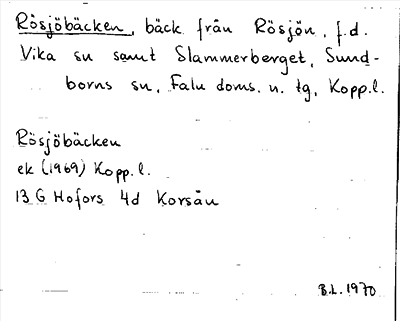 Rösjöbäcken, bäck från Rösjön, f.d.
Vika sn samt Slammerberget, Sund-
borns sn, Falu doms. n. tg, Kopp.l.
Rösjöbäcken
ek (1969) Kopp.l.
13 G Hofors 4d Korsån
B.L. 1970